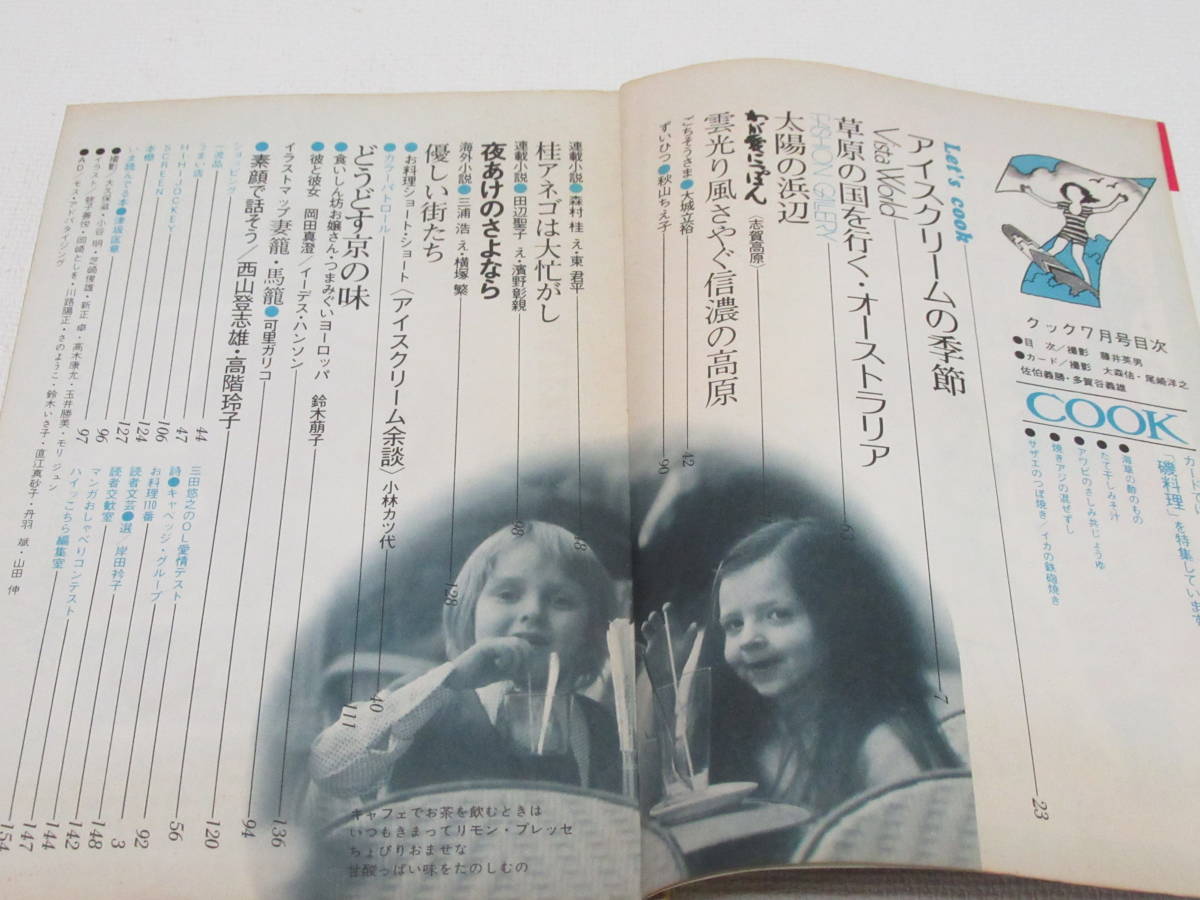 クック7月号目次
●目次/撮影 藤井英男
●カード/撮影 大森信・尾崎洋之
佐伯義勝・多賀谷義雄
COOK
「磯料理」を特集しています
●海草の酢のもの
●たて干しみそ汁
●アワビのさしみ共じょうゆ
●焼きアジの混ぜずし
●サザエのつぼ焼き/イカの鉄砲焼き
23
Let's cook
アイスクリームの季節
7
Vista World
草原の国を行く・オーストラリア
63
FASHION GALLERY
太陽の浜辺
わが愛にっぽん〈志賀高原〉
雲光り風さやぐ信濃の高原
ごちそうさま●大城立裕
42
ずいひつ●秋山ちえ子
90
連載小説●森村 桂 え・東 君平
桂アネゴは大忙がし
連載小説●田辺聖子 え・濱野彰親
夜あけのさよなら
98
海外小説●三浦 浩 え・横塚 繁
優しい街たち
128
●お料理ショート・ショート〈アイスクリーム余談〉小林カツ代
40
●カラーパトロール
どうどす京の味
111
●食いしん坊お嬢さん・つまみぐいヨーロッパ 鈴木萠子
●彼と彼女 岡田真澄/イーデス・ハンソン
イラストマップ 妻籠・馬籠●可里ガリコ
136
●素顔で話そう/西山登志雄・高階玲子
94
ショッピング
120
一流品
44
うまい店
47
HI・HI・JOCKEY
106
SCREEN
124
本棚
127
96
97
三田悠之のOL愛情テスト
56
詩●キャベッジ・グループ
92
お料理110番
3
読者文芸●選/岸田衿子
148
読者交歓室
142
マンガおしゃべりコンテスト
144
ハイッこちら編集室
147
154
キャフェでお茶を飲むときは
いつもきまってリモン・プレッセ
ちょぴりおませな
甘酸っぱい味をたのしむの